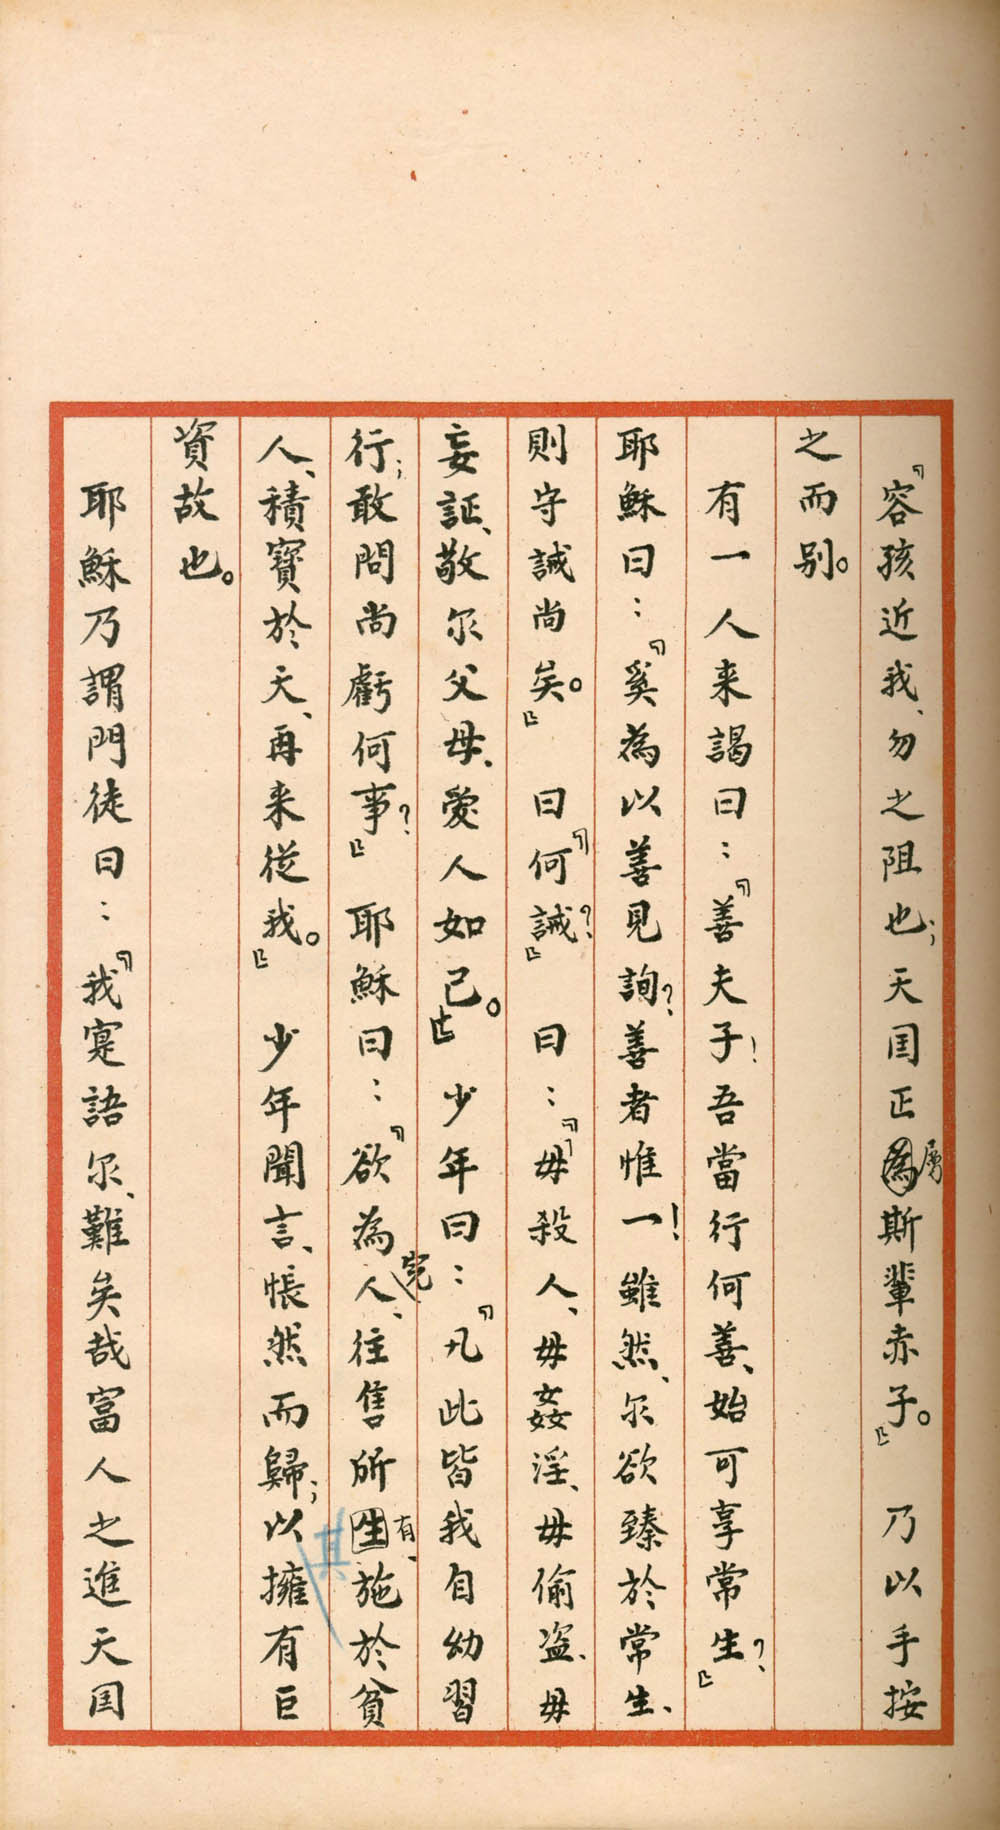 『容孩近我、勿之阻也；天国正為屬斯輩赤子。』　乃以手按
之而别。
有一人来謁曰：『善夫子！吾當行何善、始可享常生？』
耶穌曰：『奚為以善見詢？善者惟一！雖然、尔欲臻於常生、
則守誡尚矣。』　曰『何誡？』　曰：『毋殺人、毋姦淫、毋偷盗、毋
妄証、敬尔父母、愛人如己。』　少年曰：『凡此皆我自幼習
行；敢問尚虧何事？』　耶穌曰：『欲為完人、往售所生有、施於貧
其
人、積寶於天、再来從我。』　少年聞言、悵然而歸；以擁有巨
資故也。
耶穌乃謂門徒曰：『我寔語尔、難矣哉富人之進天国